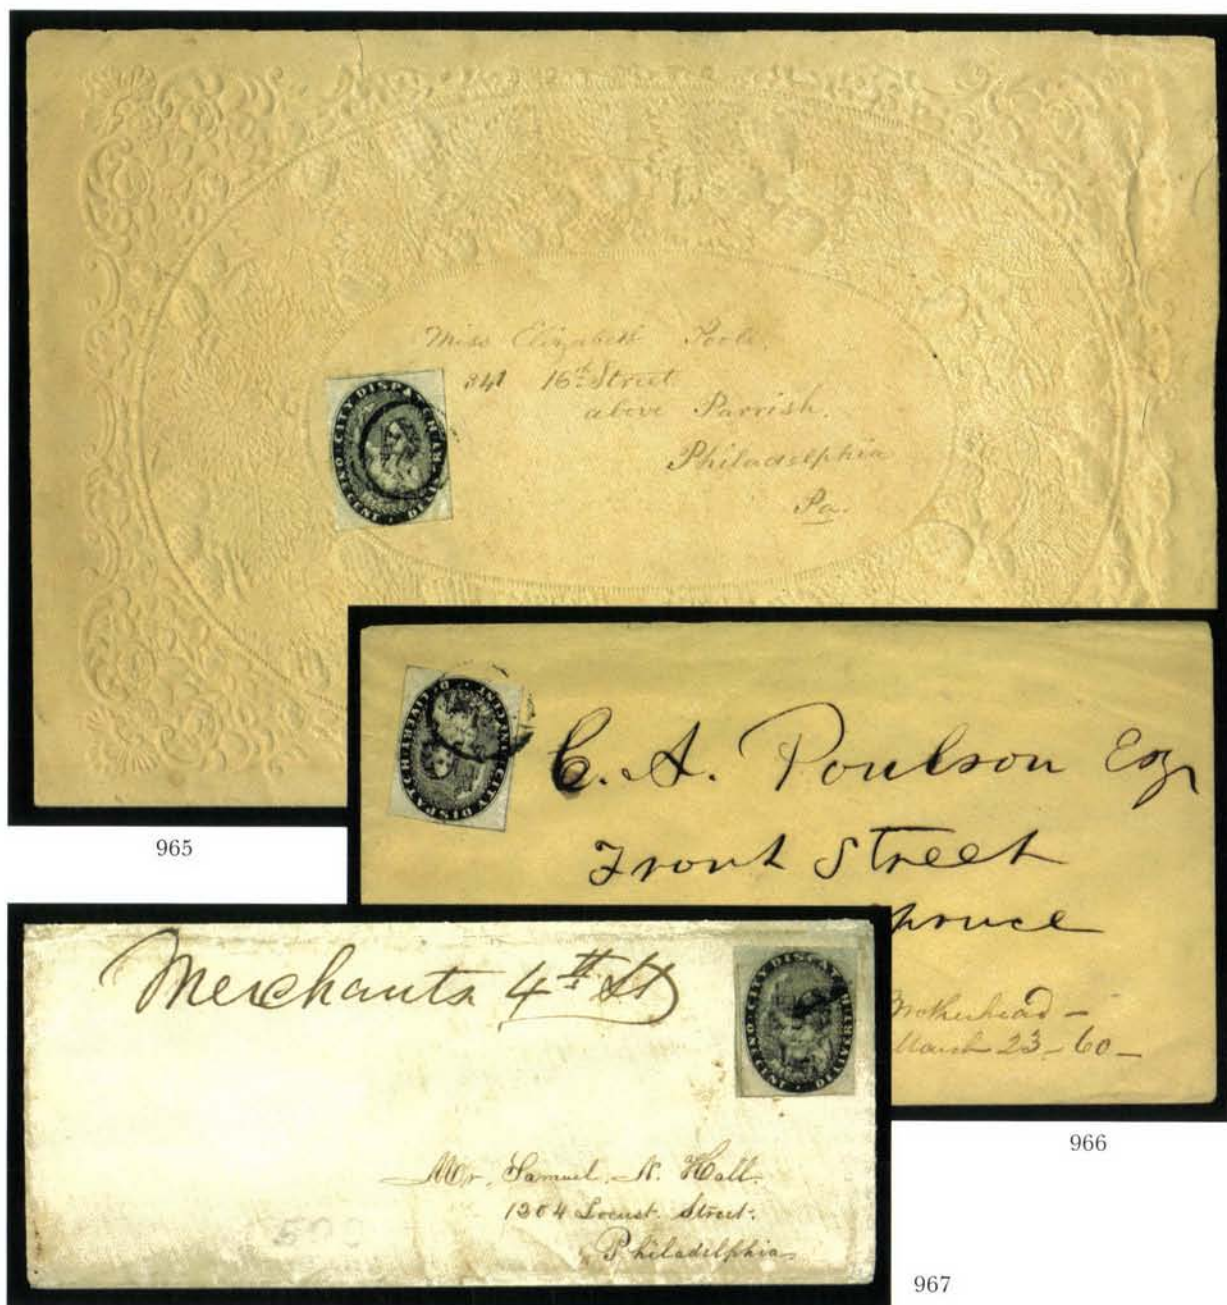 Miss Elizabeth Poole.
341 16th Street
above Parrish.
Philadelphia
Pa.
CITY DISPATCH
DELIV
ONE CENT
965
C. A. Poulson Esq
Front Street
Spruce
Brotherhead -
March 23 - 60 -
CITY DISPATCH
966
Merchants 4th St
CITY DISPATCH
ONE CENT
Mr. Samuel N. Hall.
1304 Locust Street.
Philadelphia
500
967